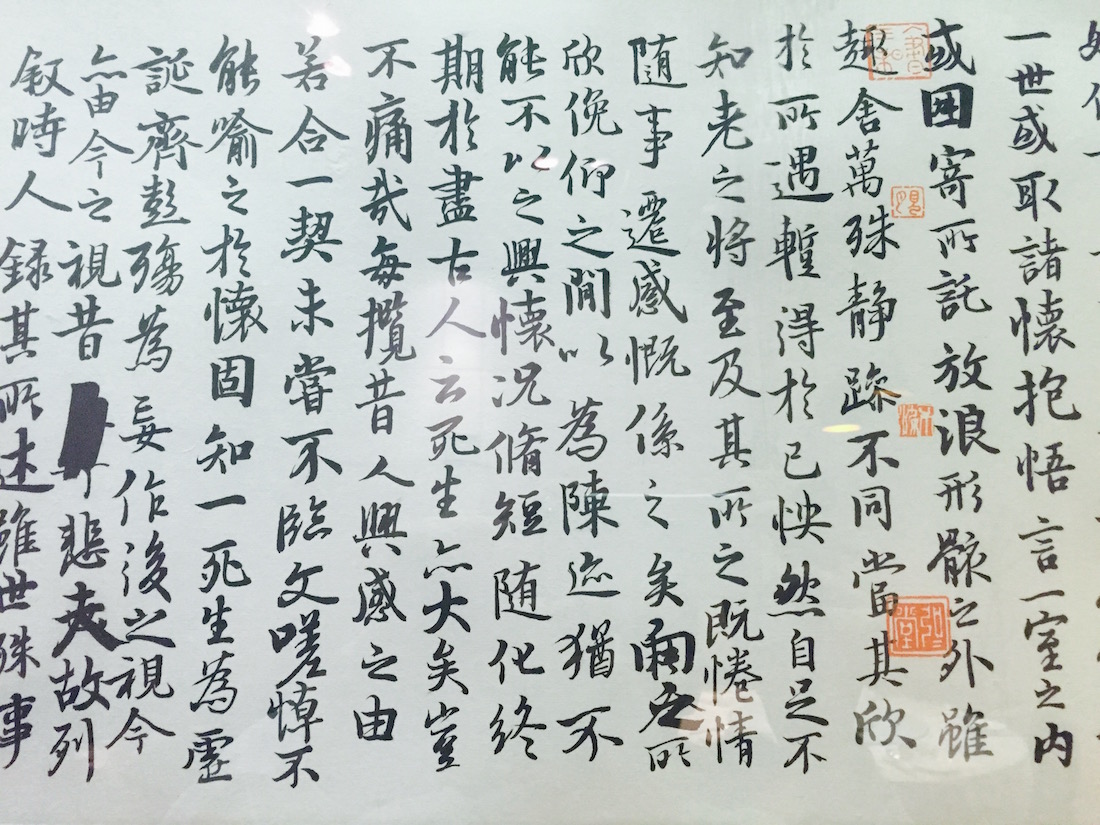 一世或取諸懷抱悟言一室之内
或因寄所託放浪形骸之外雖
趣舍萬殊静躁不同當其欣
於所遇暫得於己怏然自足不
知老之將至及其所之既惓情
随事遷感慨係之矣向之所
欣俛仰之閒以為陳迹猶不
能不以之興懷况脩短随化終
期於盡古人云死生亦大矣豈
不痛哉每攬昔人興感之由
若合一契未嘗不臨文嗟悼不
能喻之於懷固知一死生為虚
誕齊彭殤為妄作後之視今
亦由今之視昔悲夫故列
叙時人録其所述雖世殊事